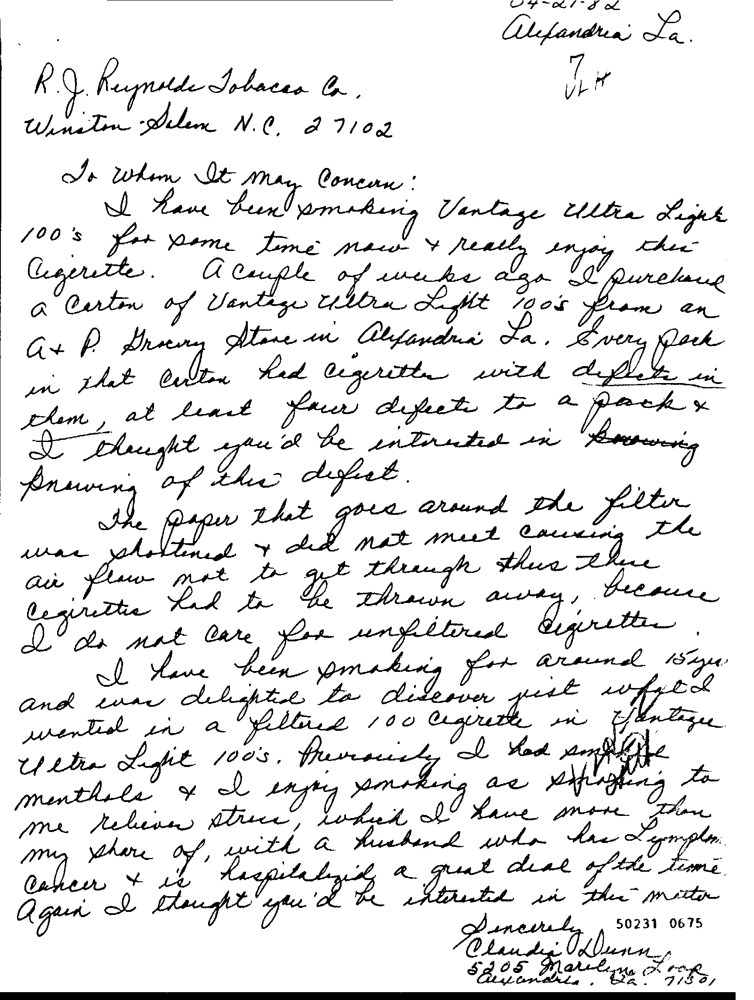 04-21-82
Alexandria La.
R.J. Reynolds Tobacco Co.
Winston-Salem N.C. 27102
To Whom It May Concern:
I have been smoking Vantage Ultra Light
100's for some time now & really enjoy this
Cigerette. A couple of weeks ago I purchased
a Carton of Vantage Ultra Light 100's from an
A & P. Grocery Store in Alexandria La. Every pack
in that Carton had cigerettes with defects in
them, at least four defects to a pack &
I thought you'd be interested in knowing
knowing of this defect.
The paper that goes around the filter
was shortened & did not meet causing the
air flow not to get through thus these
Cegirettes had to be thrown away, because
I do not care for unfiltered cigerettes.
I have been smoking for around 15 yrs.
and was delighted to discover just what I
wanted in a filtered 100 Cegerette in Vantage
Ultra Light 100's. Previously I had smoked
menthols & I enjoy smoking as smoking to
me relieves stress, which I have more than
my share of, with a husband who has Lymphoma
Cancer & is hospitalized a great deal of the time.
Again I thought you'd be interested in this matter
Sincerely
50231 0675
Claudia Dunn
5205 Marilyn Loop
Alexandria, La. 71301